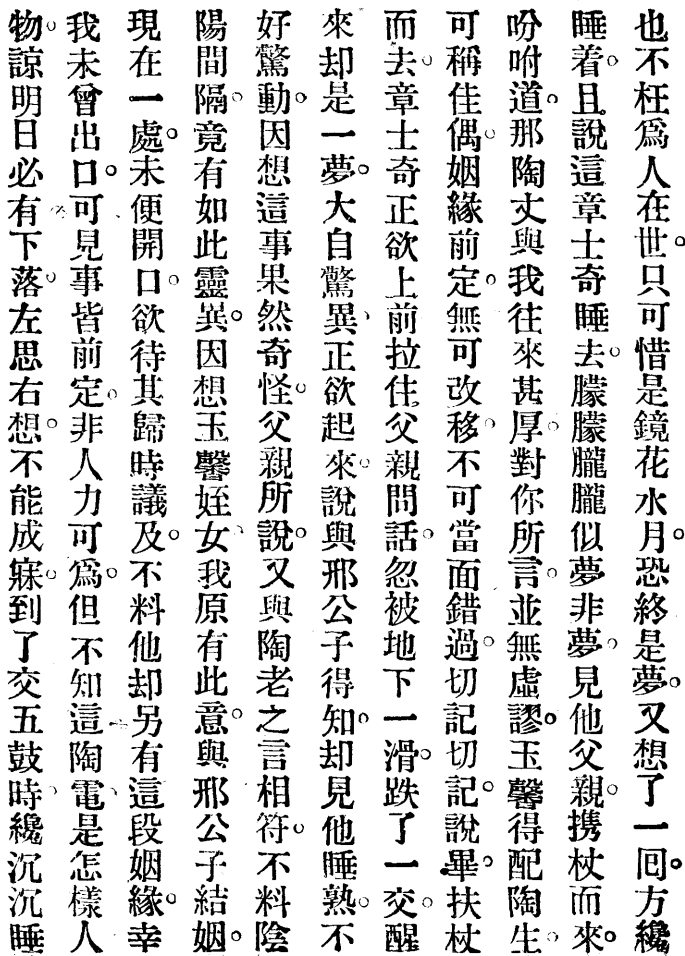 也不枉爲人在世。只可惜是鏡花水月。恐終是夢。又想了一囘。方纔
睡着。且說這章士奇睡去。朦朦朧朧似夢非夢。見他父親。攜杖而來。
吩咐道。那陶丈與我往來甚厚。對你所言。並無虛謬。玉馨得配陶生。
可稱佳偶。姻緣前定。無可改移。不可當面錯過。切記切記。說畢。扶杖
而去。章士奇正欲上前拉住。父親問話。忽被地下一滑。跌了一交。醒
來却是一夢。大自驚異、正欲起來。說與邢公子得知。却見他睡熟。不
好驚動。因想這事果然奇怪。父親所說。又與陶老之言相符。不料陰
陽間隔。竟有如此靈異。因想玉馨姪女。我原有此意。與邢公子結姻。
現在一處。未便開口。欲待其歸時議及。不料他却另有這段姻緣。幸
我未曾出口。可見事皆前定。非人力可爲。但不知這陶電是怎樣人
物。諒明日必有下落。左思右想。不能成寐。到了交五鼓時、纔沉沉睡